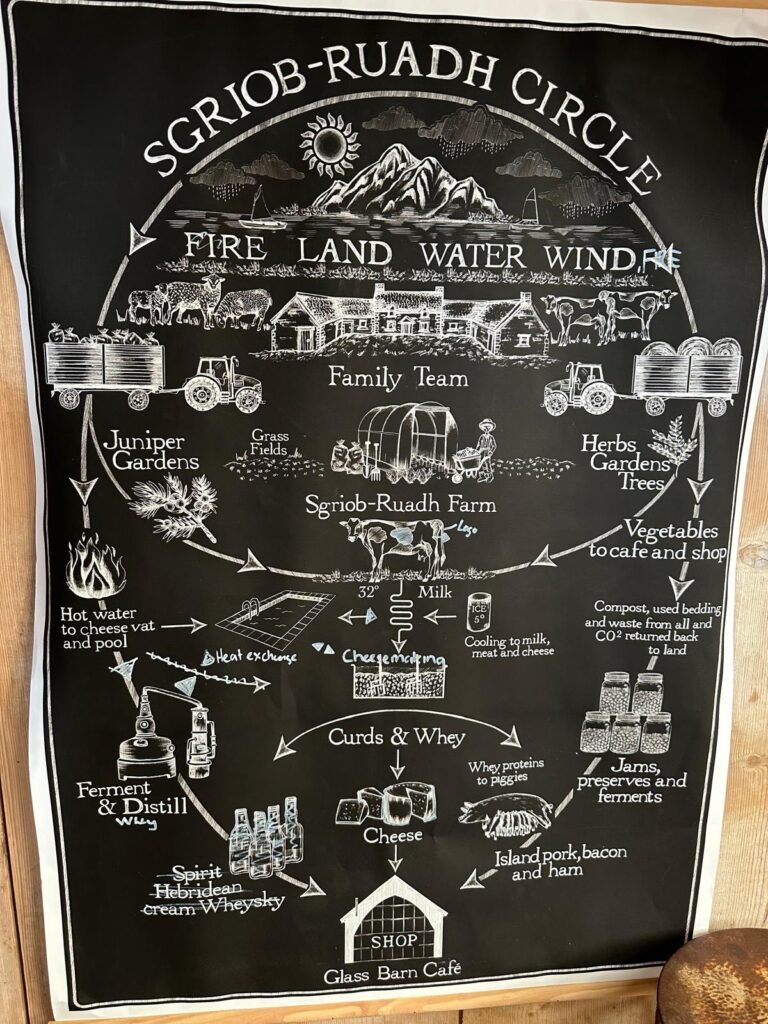 SGRIOB-RUADH CIRCLE
FIRE LAND WATER WIND
Family Team
Juniper
Gardens
Grass
Fields
Herbs
Gardens
Trees
Sgriob-Ruadh Farm
Vegetables
to cafe and shop
32° Milk
ICE
5°
Hot water
to cheese vat
and pool
Cooling to milk,
meat and cheese
Compost, used bedding
and waste from all and
CO² returned back
to land
Heat exchange
Cheesemaking
Curds & Whey
Ferment
& Distill
Whey
Whey proteins
to piggies
Jams,
preserves and
ferments
Cheese
Spirit
Hebridean
cream Wheysky
Island pork, bacon
and ham
SHOP
Glass Barn Café